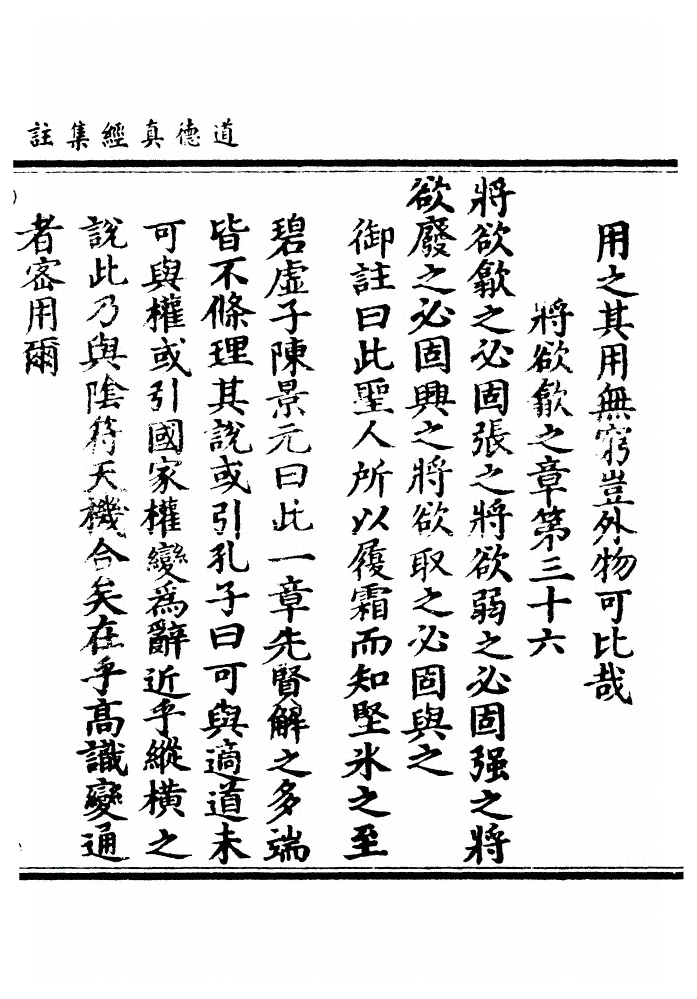 道德真經集註
用之其用無窮豈外物可比哉
將欲歙之章第三十六
將欲歙之必固張之將欲弱之必固强之將
欲廢之必固興之將欲取之必固與之
御註曰此聖人所以履霜而知堅氷之至
碧虛子陳景元曰此一章先賢解之多端
皆不條理其說或引孔子曰可與適道未
可與權或引國家權變爲辭近乎縱橫之
說此乃與隂符天機合矣在乎高識變通
者密用爾